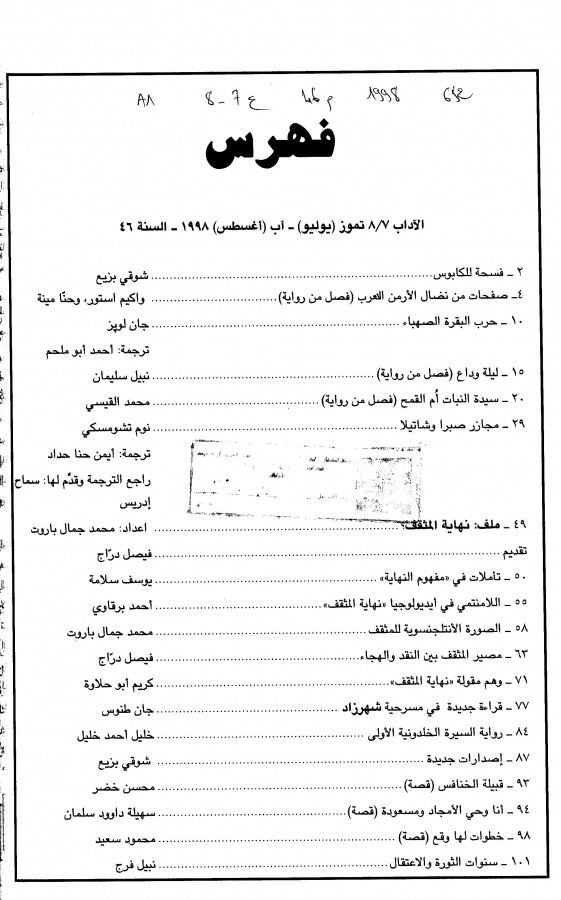 642 1998 م 46 ع 7-8 A1
فهرس
الآداب ٨/٧ تموز (يوليو) - آب (أغسطس) ١٩٩٨ - السنة ٤٦
٢ - فسحة للكابوس ........ شوقي بزيع
٤ - صفحات من نضال الأرمن العرب (فصل من رواية) ........ واكيم استور، وحنّا مينة
١٠ - حرب البقرة الصهباء ........ جان لوپز
ترجمة: أحمد أبو ملحم
١٥ - ليلة وداع (فصل من رواية) ........ نبيل سليمان
٢٠ - سيدة النبات أم القمح (فصل من رواية) ........ محمد القيسي
٢٩ - مجازر صبرا وشاتيلا ........ نوم تشومسكي
ترجمة: أيمن حنا حداد
راجع الترجمة وقدّم لها: سماح
إدريس
٤٩ - ملف: نهاية المثقف؟ ........ اعداد: محمد جمال باروت
تقديم ........ فيصل درّاج
٥٠ - تأملات في «مفهوم النهاية» ........ يوسف سلامة
٥٥ - اللامنتمي في أيديولوجيا «نهاية المثقف» ........ أحمد برقاوي
٥٨ - الصورة الأنتلجنسوية للمثقف ........ محمد جمال باروت
٦٣ - مصير المثقف بين النقد والهجاء ........ فيصل درّاج
٧١ - وهم مقولة «نهاية المثقف» ........ كريم أبو حلاوة
٧٧ - قراءة جديدة في مسرحية شهرزاد ........ جان طنوس
٨٤ - رواية السيرة الخلدونية الأولى ........ خليل أحمد خليل
٨٧ - إصدارات جديدة ........ شوقي بزيع
٩٣ - قبيلة الخنافس (قصة) ........ محسن خضر
٩٤ - أنا وحي الأمجاد ومسعودة (قصة) ........ سهيلة داوود سلمان
٩٨ - خطوات لها وقع (قصة) ........ محمود سعيد
١٠١ - سنوات الثورة والاعتقال ........ نبيل فرج